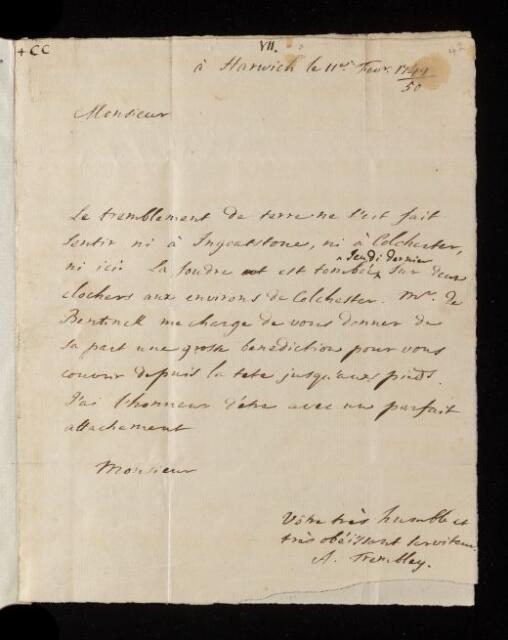 + CC
VII.
42
à Harwich le 11e. Fevr. 1749/50
Monsieur
Le tremblement de terre ne s'est fait
sentir ni à Ingeatstone, ni à Colchester,
ni ici. La foudre est tombée ^ Jeudi dernier sur deux
clochers aux environs de Colchester. Mr. de
Bentinck me charge de vous donner de
sa part une grosse benediction pour vous
couvrir depuis la tete jusqu'aux pieds.
J'ai l'honneur d'être avec un parfait
attachement
Monsieur
Vôtre très humble et
très obéissant serviteur
A. Trembley.